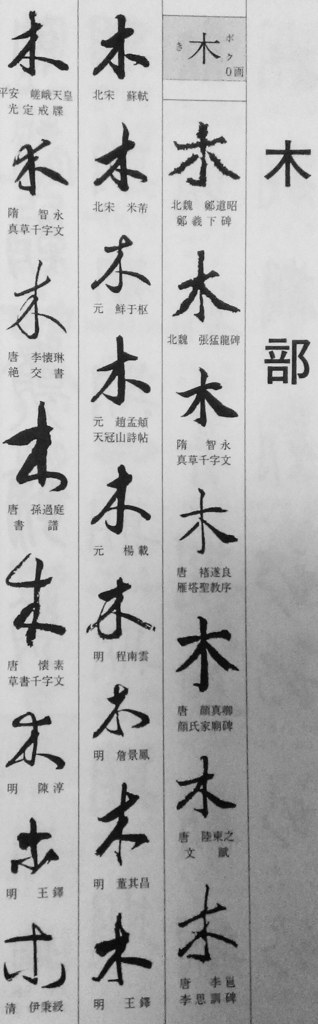 木部
木
ボク
き
0画
木
北魏 鄭道昭
鄭羲下碑
木
北魏 張猛龍碑
木
隋 智永
真草千字文
木
唐 褚遂良
雁塔聖教序
木
唐 顔真卿
顔氏家廟碑
木
唐 陸柬之
文賦
木
唐 李邕
李思訓碑
木
北宋 蘇軾
木
北宋 米芾
木
元 鮮于枢
木
元 趙孟頫
天冠山詩帖
木
元 楊載
木
明 程南雲
木
明 詹景鳳
木
明 董其昌
木
明 王鐸
木
平安 嵯峨天皇
光定戒牒
木
隋 智永
真草千字文
木
唐 李懐琳
絶交書
木
唐 孫過庭
書譜
木
唐 懐素
草書千字文
木
明 陳淳
木
明 王鐸
木
清 伊秉綬